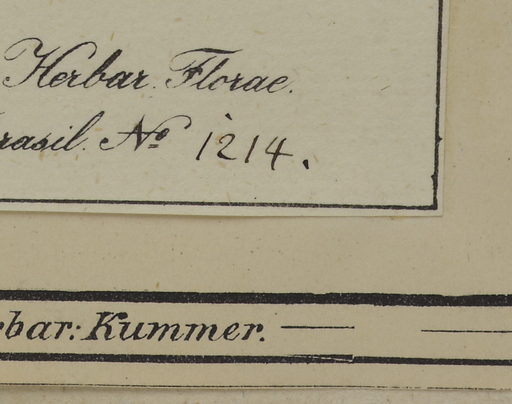 Herbar. Florae.
rasil. No 1214.
rbar: Kummer.